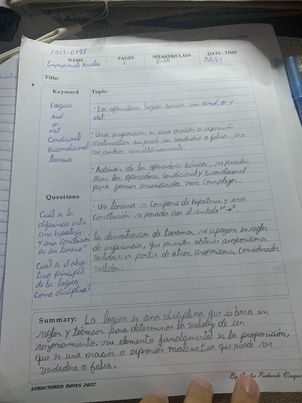 NAME PAGES SPEAKER/CLASS DATE - TIME
1
Title:
Keyword Topic:
Lógica
And
or
Not
Condicional
bicondicional
teorema
- Los operadores lógicos básicos son and, or y
Not.
- Una proposición es una oración o expresión
matemática que puede ser verdadera o falsa, pero
no ambas simultáneamente.
- Además de los operadores básicos, se pueden
usar los operadores condicional y bicondicional
para formar enunciados más complejos.
Questions
Cuál es la
diferencia entre
una hipótesis
y una conclusión
en un teorema?
Cuál es el obje
tivo principal
de la lógica
como disciplina?
- Un teorema se compone de hipótesis y una
conclusión separada por el símbolo "→"
la demostración de teoremas se apoya en reglas
de inferencia, que permiten obtener proposiciones
válidas a partir de otras proposiciones consideradas
válidas.
Summary: La lógica es una disciplina que se basa en
reglas y técnicas para determinar la validez de un
razonamiento. su elemento fundamental es la proposición,
que es una oración o expresión matemática que puede ser
verdadera o falsa.
STRUCTURED NOTES 2022
By Carlos